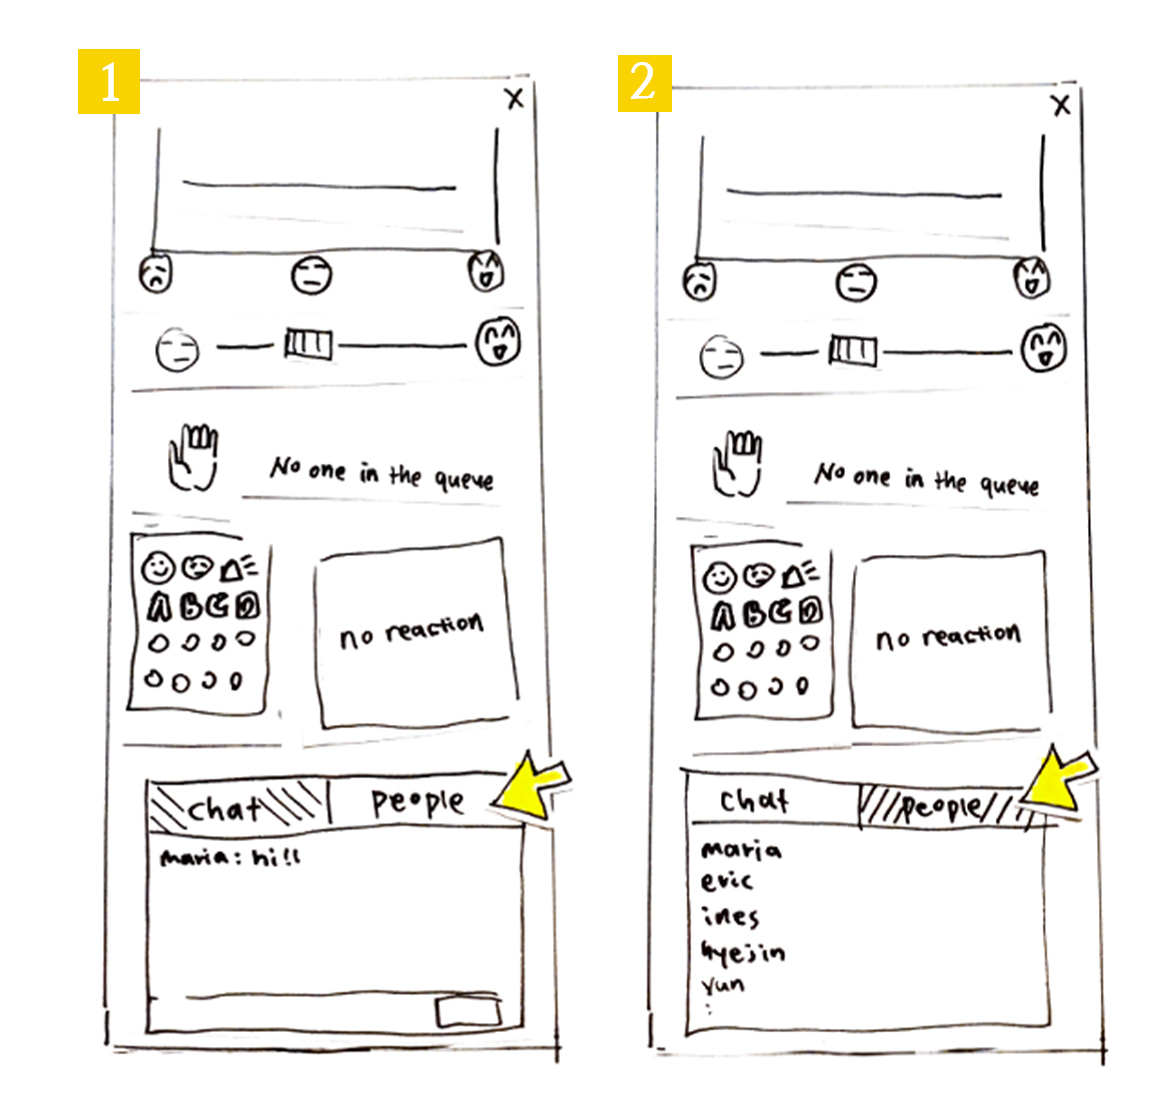 1
X
No one in the queue
A B C D
no reaction
chat people
maria: hi!!
2
X
No one in the queue
A B C D
no reaction
chat people
maria
eric
ines
hyejin
yun
: